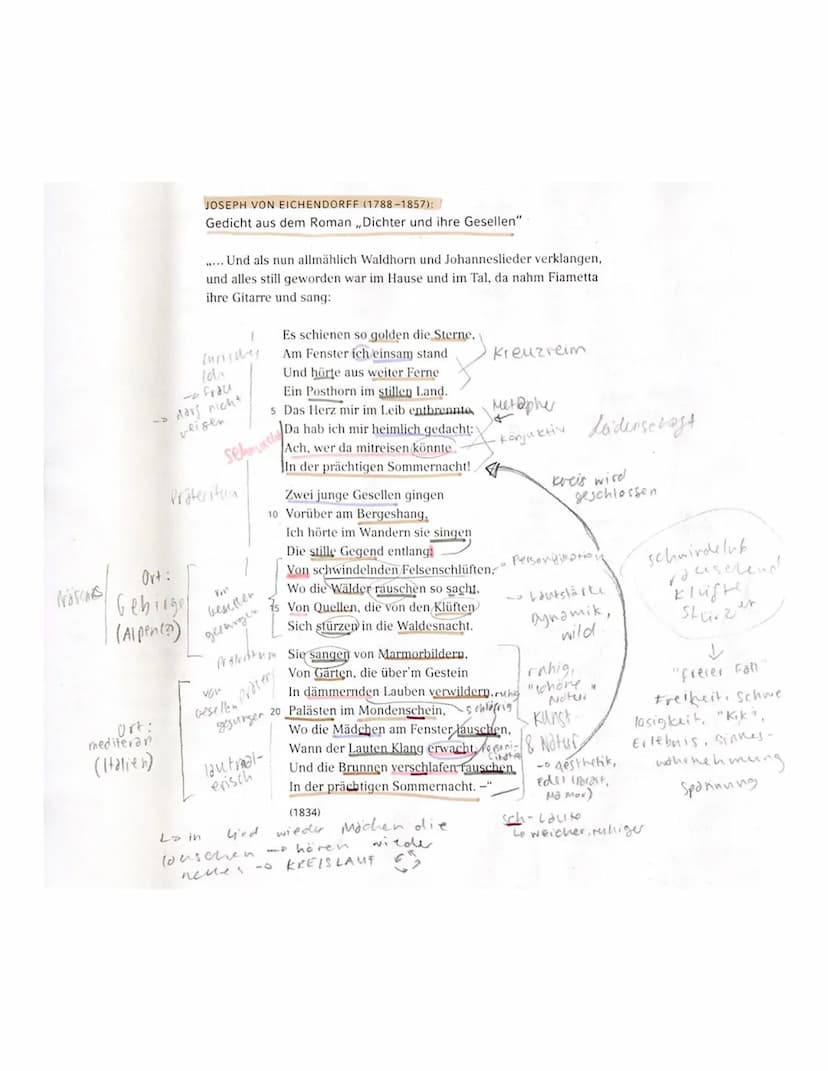 JOSEPH VON EICHENDORFF (1788–1857):
Gedicht aus dem Roman „Dichter und ihre Gesellen“
„... Und als nun allmählich Waldhorn und Johanneslieder verklangen,
und alles still geworden war im Hause und im Tal, da nahm Fiametta
ihre Gitarre und sang:
Es schienen so golden die Sterne,
Am Fenster ich einsam stand
Und hörte aus weiter Ferne
Ein Posthorn im stillen Land.
5 Das Herz mir im Leib entbrennte,
Da hab ich mir heimlich gedacht:
Ach, wer da mitreisen könnte
In der prächtigen Sommernacht!
Zwei junge Gesellen gingen
10 Vorüber am Bergeshang,
Ich hörte im Wandern sie singen
Die stille Gegend entlang:
Von schwindelnden Felsenschlüften,
Wo die Wälder rauschen so sacht,
15 Von Quellen, die von den Klüften
Sich stürzen in die Waldesnacht.
Sie sangen von Marmorbildern,
Von Gärten, die über'm Gestein
In dämmernden Lauben verwildern,
20 Palästen im Mondenschein,
Wo die Mädchen am Fenster lauschen,
Wann der Lauten Klang erwacht,
Und die Brunnen verschlafen rauschen
In der prächtigen Sommernacht. –“
(1834)
Ich
→ Frau
→ darf nicht
reisen
Präteritum
Präsens
Ort:
Gebirge
(Alpen(?)
von
Gesellen
gesungen
Präteritum
von
Gesellen
gesungen
Ort:
mediteran
(Italien)
lautmal-
erisch
Kreuzreim
Metapher
Konjuktiv
Leidenschaft
Kreis wird
geschlossen
Personifikation
→ Lautstärke
Dynamik,
wild
schwindelnd
rauschend
Klüfte
Stürzen
↓
"freier Fall"
Freiheit, Schwe
losigkeit, "Kik",
Erlebnis, Sinnes-
wahrnehmung
Spannung
ruhig,
"schöne
Natur"
Kunst
& Natur
→ Aesthetik,
edel
Mamor)
ruhig
schläfrig
sch-Laute
↳ weicher, ruhiger
↳ in Lied wieder Mächen die
lauschen → hören wieder
neues → KREISLAUF